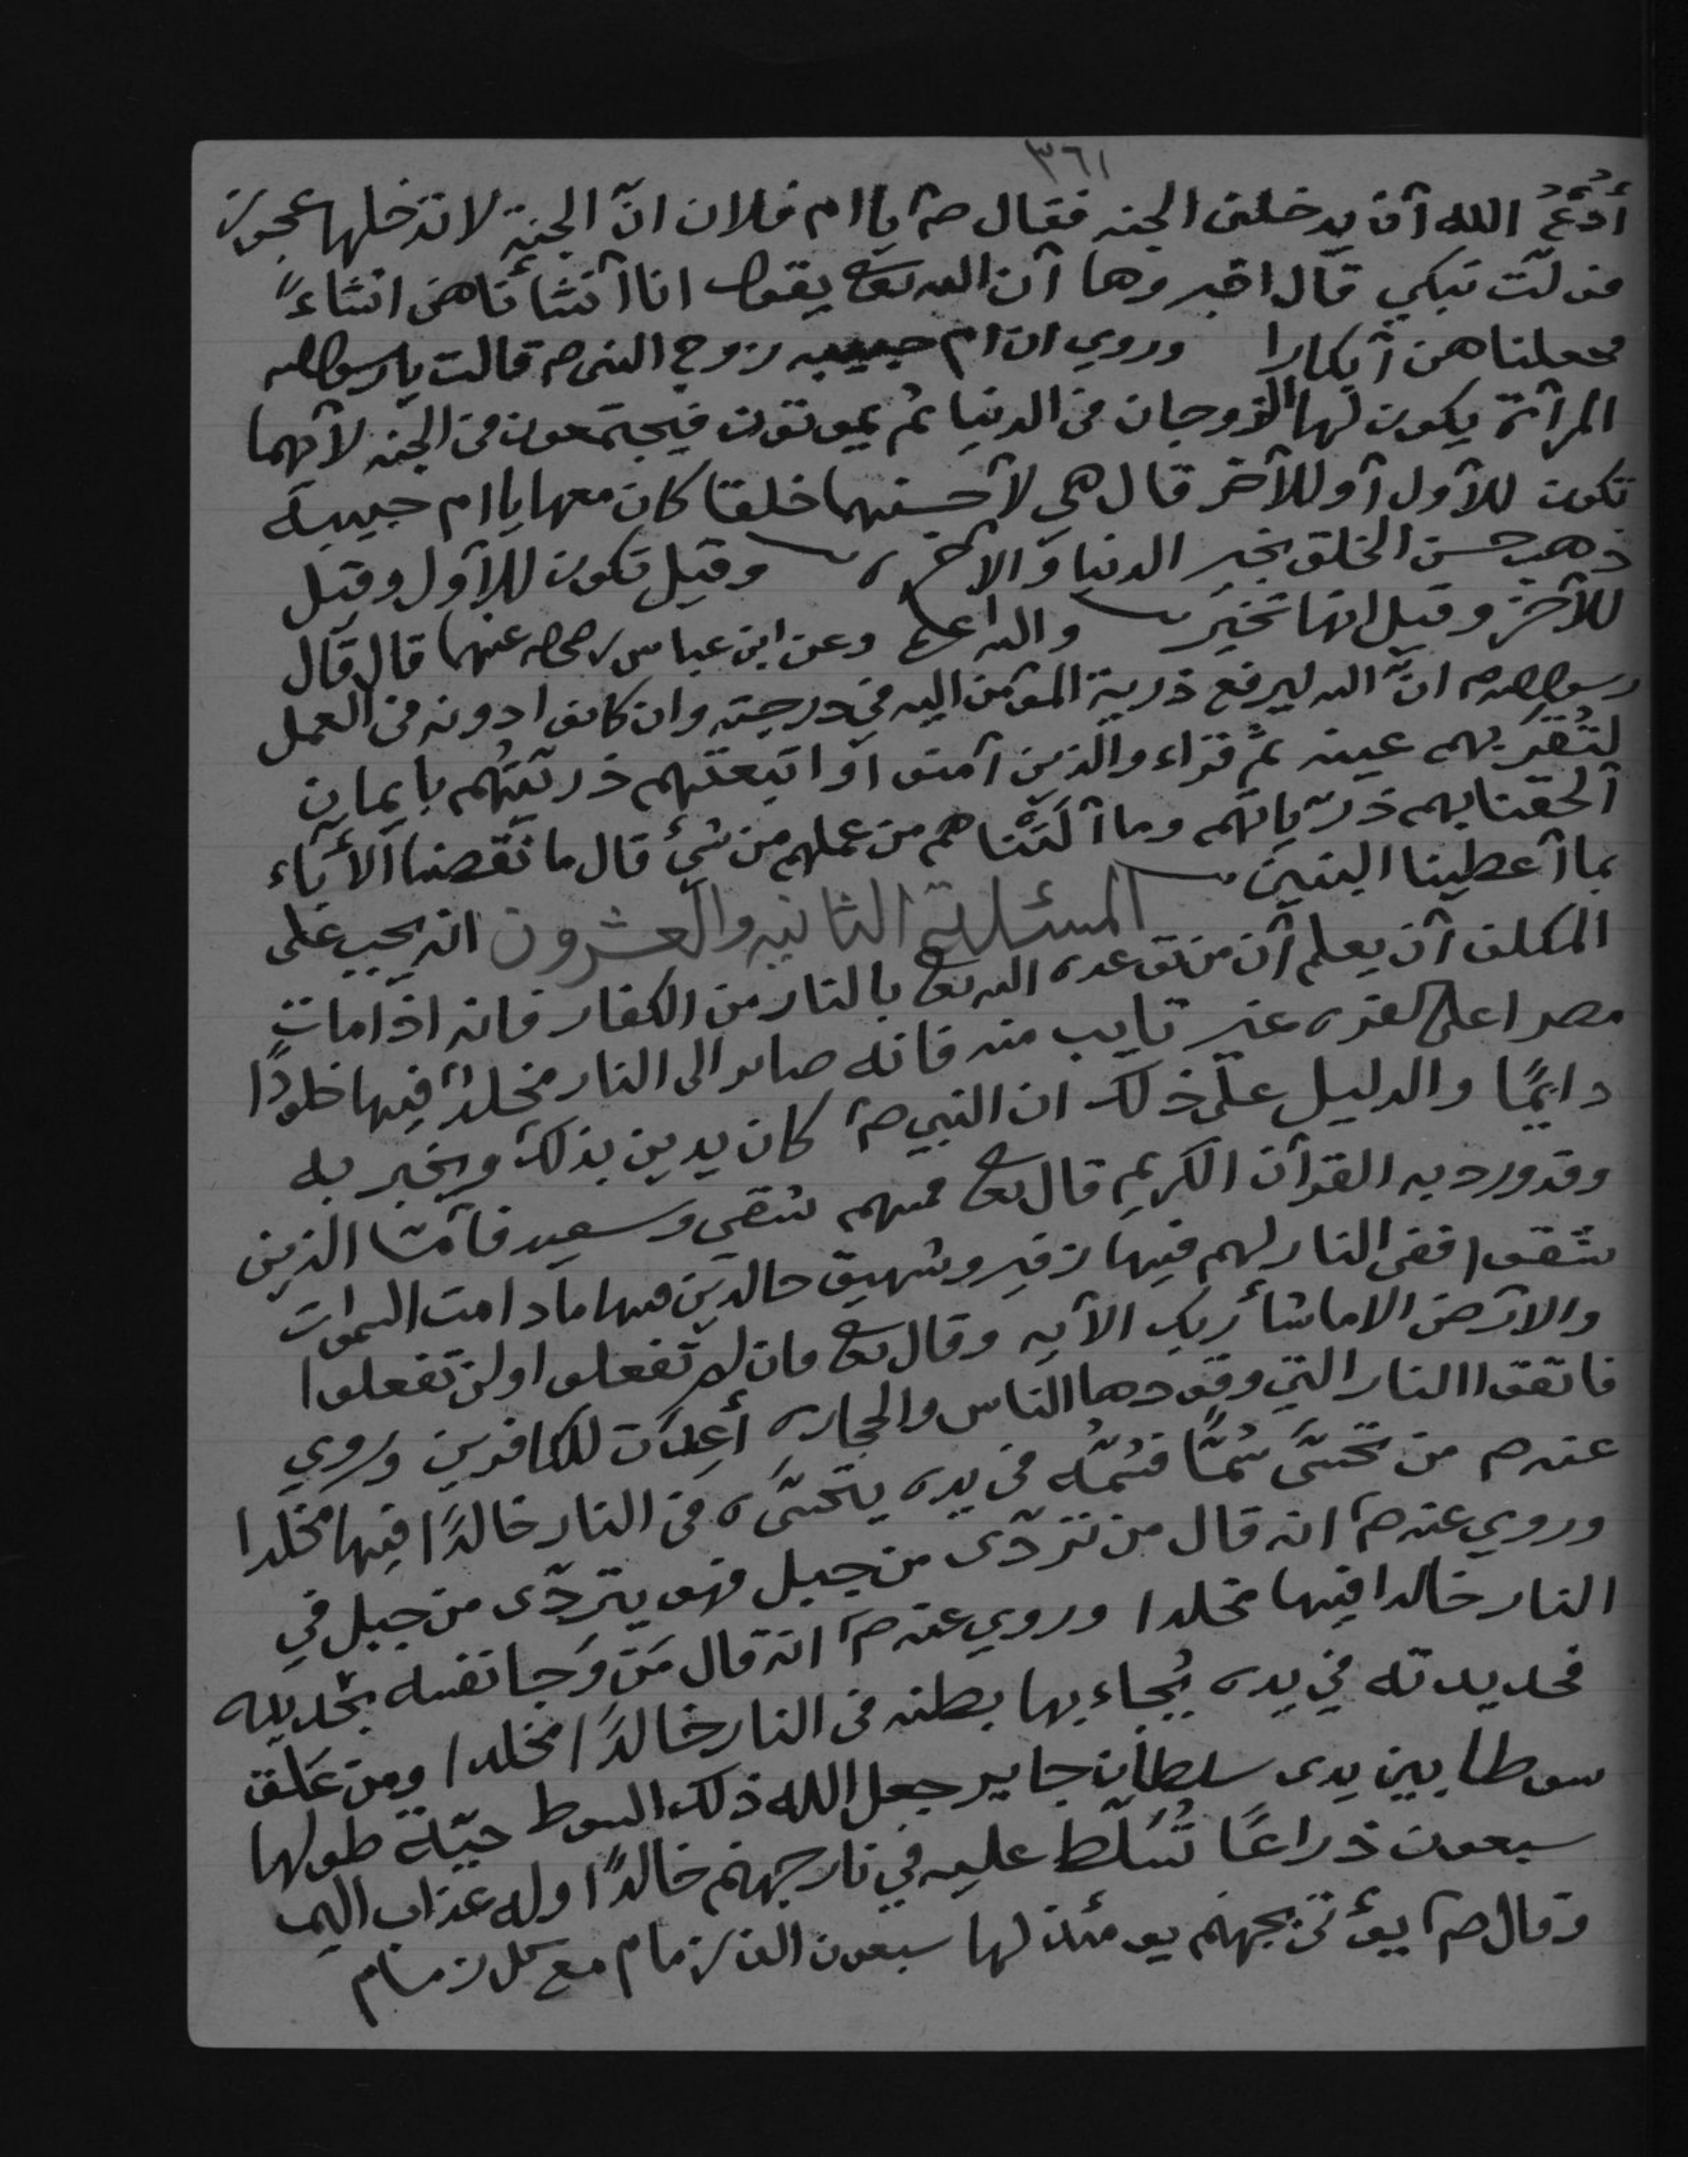 ٣٦١
أدْعُ الله أن يدخلني الجنه فقال صم يا ام فلان انّ الجنة لا تدخلها عجوز
فولّت تبكي قال اخبروها أن الله تعالى يقول انا أنشأناهن انشاءً
فجعلناهن أبكارا وروي ان ام حبيبه زوج النبي صم قالت يا رسول الله
المرأة يكون لها الزوجان في الدنيا ثم يموتون فيجتمعون في الجنه لأيهما
تكون للأول أو للآخر قال هي لأحسنهما خلقا كان معها يا ام حبيبة
ذهب حسن الخلق بخير الدنيا والآخره وقيل تكون للأول وقيل
للآخر وقيل انها تخيّر والله اعلم وعن ابن عباس رضي الله عنهما قال قال
رسول الله صم انّ الله ليرفع ذرية المؤمن اليه في درجته وان كانوا دونه في العمل
لتُقرّ بهم عينه ثم قراء والذين آمنوا واتبعتهم ذريّتهُم بايمان
ألحقنا بهم ذرّياتهم وما ألَتْناهم من عملهم من شيء قال ما نقصنا الأباء
بما أعطينا البنين المسئلة الثانيه والعشرون انه يجب على
المكلف أن يعلم أن من توعده الله تعالى بالنار من الكفار فانه اذا مات
مصرا على كفره غير تايب منه فانه صاير الى النار مخلدًا فيها خلودًا
دايمًا والدليل على ذلك ان النبي صم كان يدين بذلك ويخبر به
وقد ورد به القرآن الكريم قال تعالى فمنهم شقي وسعيد فأمّا الذين
شقوا ففي النار لهم فيها زفير وشهيق خالدين فيها ما دامت السموات
والارض الا ما شأ ربك الآيه وقال تعالى فان لم تفعلوا ولن تفعلوا
فاتقوا النار التي وقودها الناس والحجاره أُعِدَّت للكافرين وروي
عنه صم من تحسَّى سُمًّا فسُمّه في يده يتحسَّاه في النار خالدًا فيها مخلدا
وروي عنه صم انه قال من تردّى من جبل فهو يتردّى من جبل في
النار خالدا فيها مخلدا وروي عنه صم انه قال مَن وَجا نفسه بحديده
فحديدته في يده يُجاء بها بطنه في النار خالدًا مخلدا ومن عَلّق
سوطا بين يدى سلطان جاير جعل الله ذلك السوط حيّة طولها
سبعون ذراعًا تُسَلّط عليه في نار جهنم خالدًا وله عذاب اليم
وقال صم يؤتى بجهنم يومئذ لها سبعون الف زمام مع كل زمام